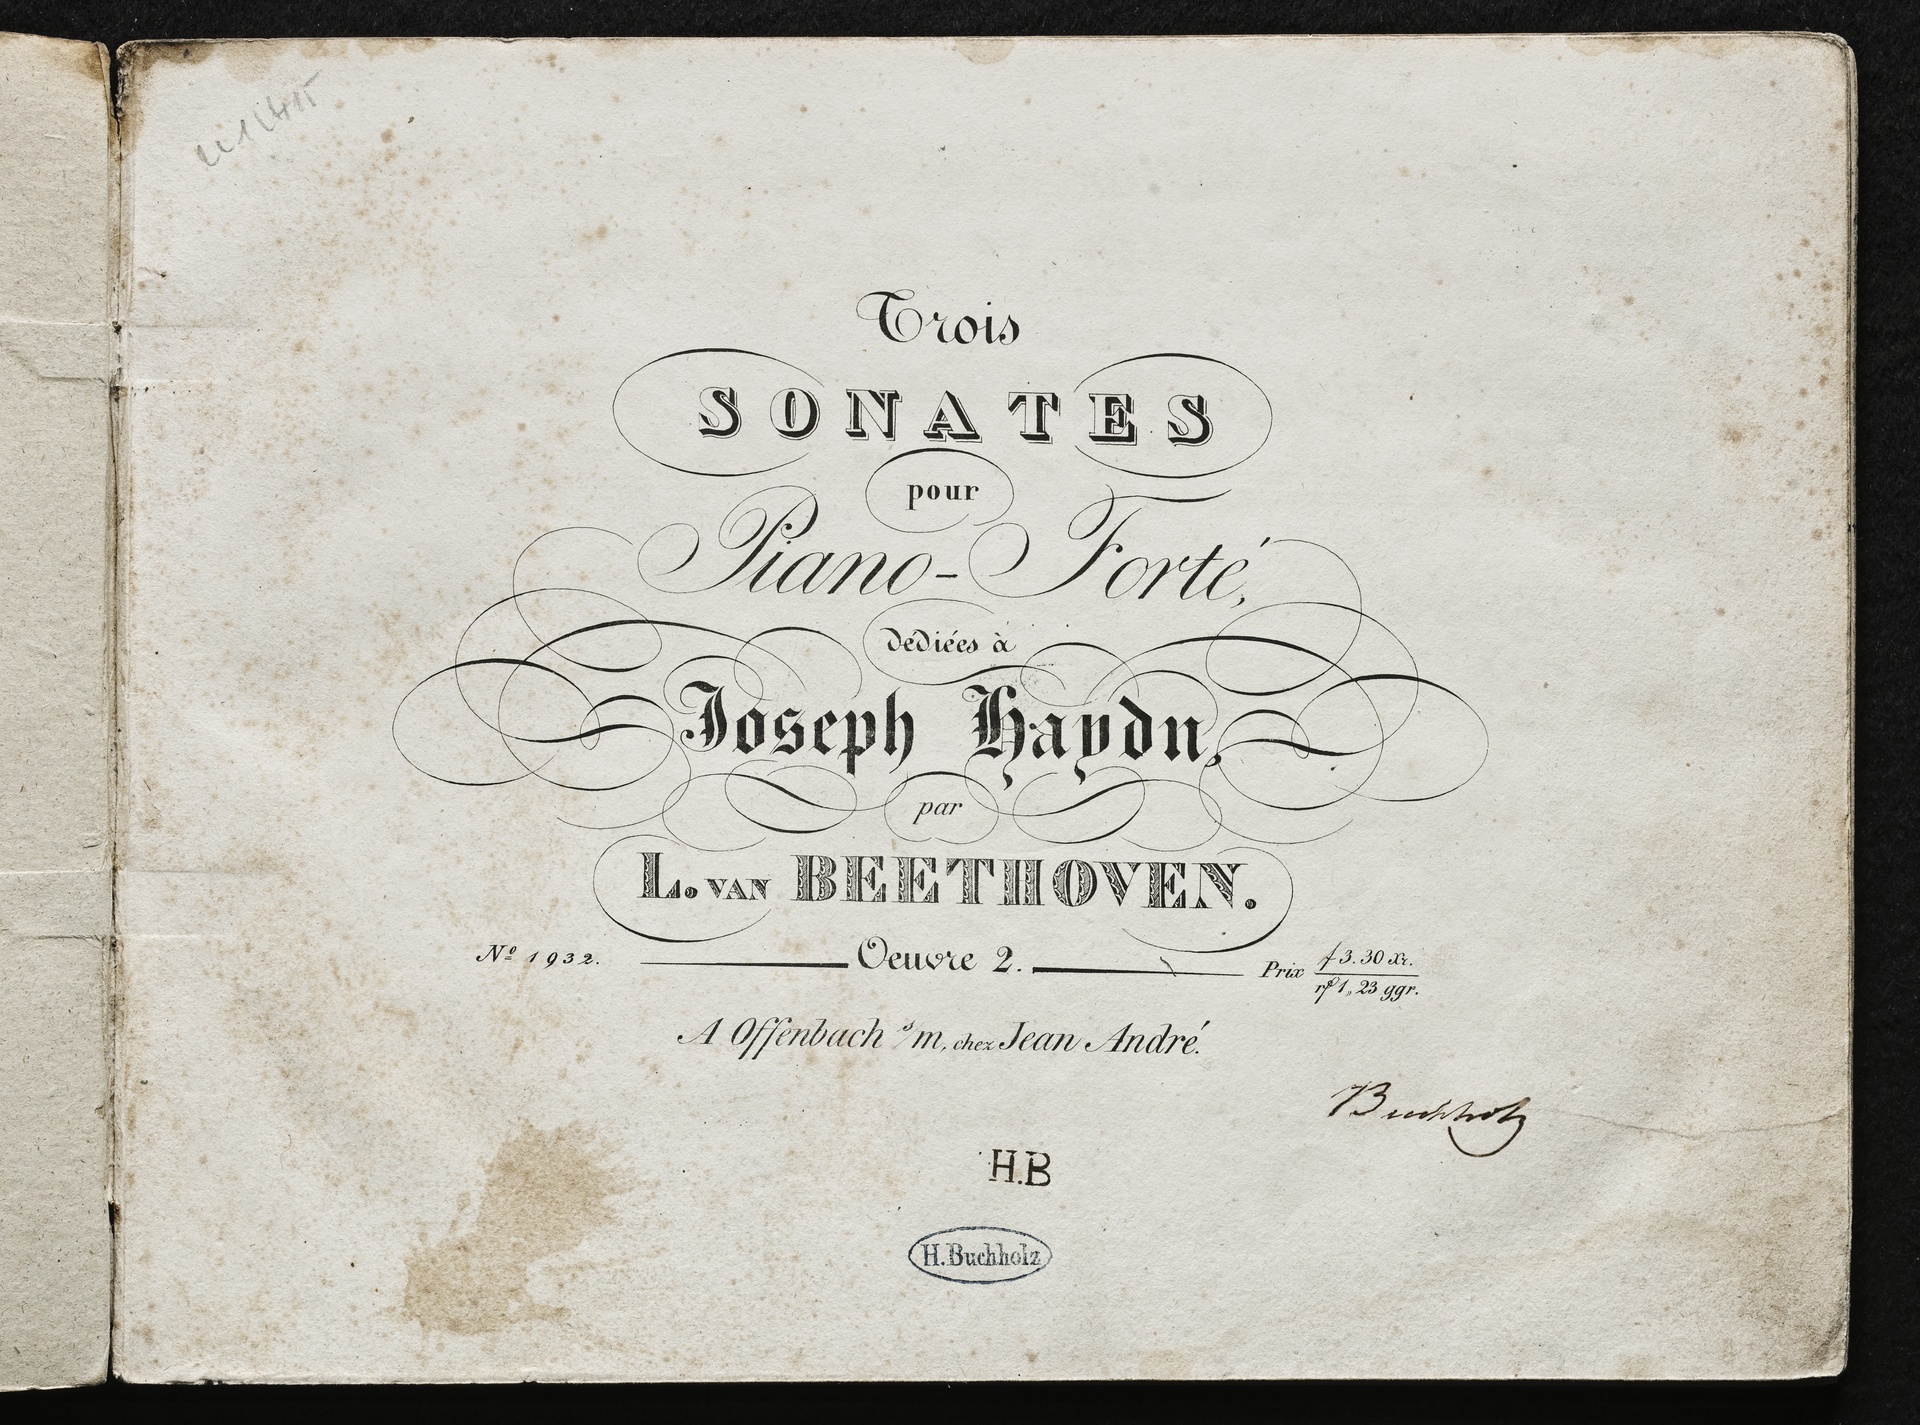 Trois
SONATES
pour
Piano-Forté,
dédiées à
Joseph Haydn,
par
L. VAN BEETHOVEN.
Nº 1932. Oeuvre 2. Prix f 3.30 Xr.
1,, 23 ggr.
A Offenbach s/m, chez Jean André.
Buchholz
H.B
H. Buchholz